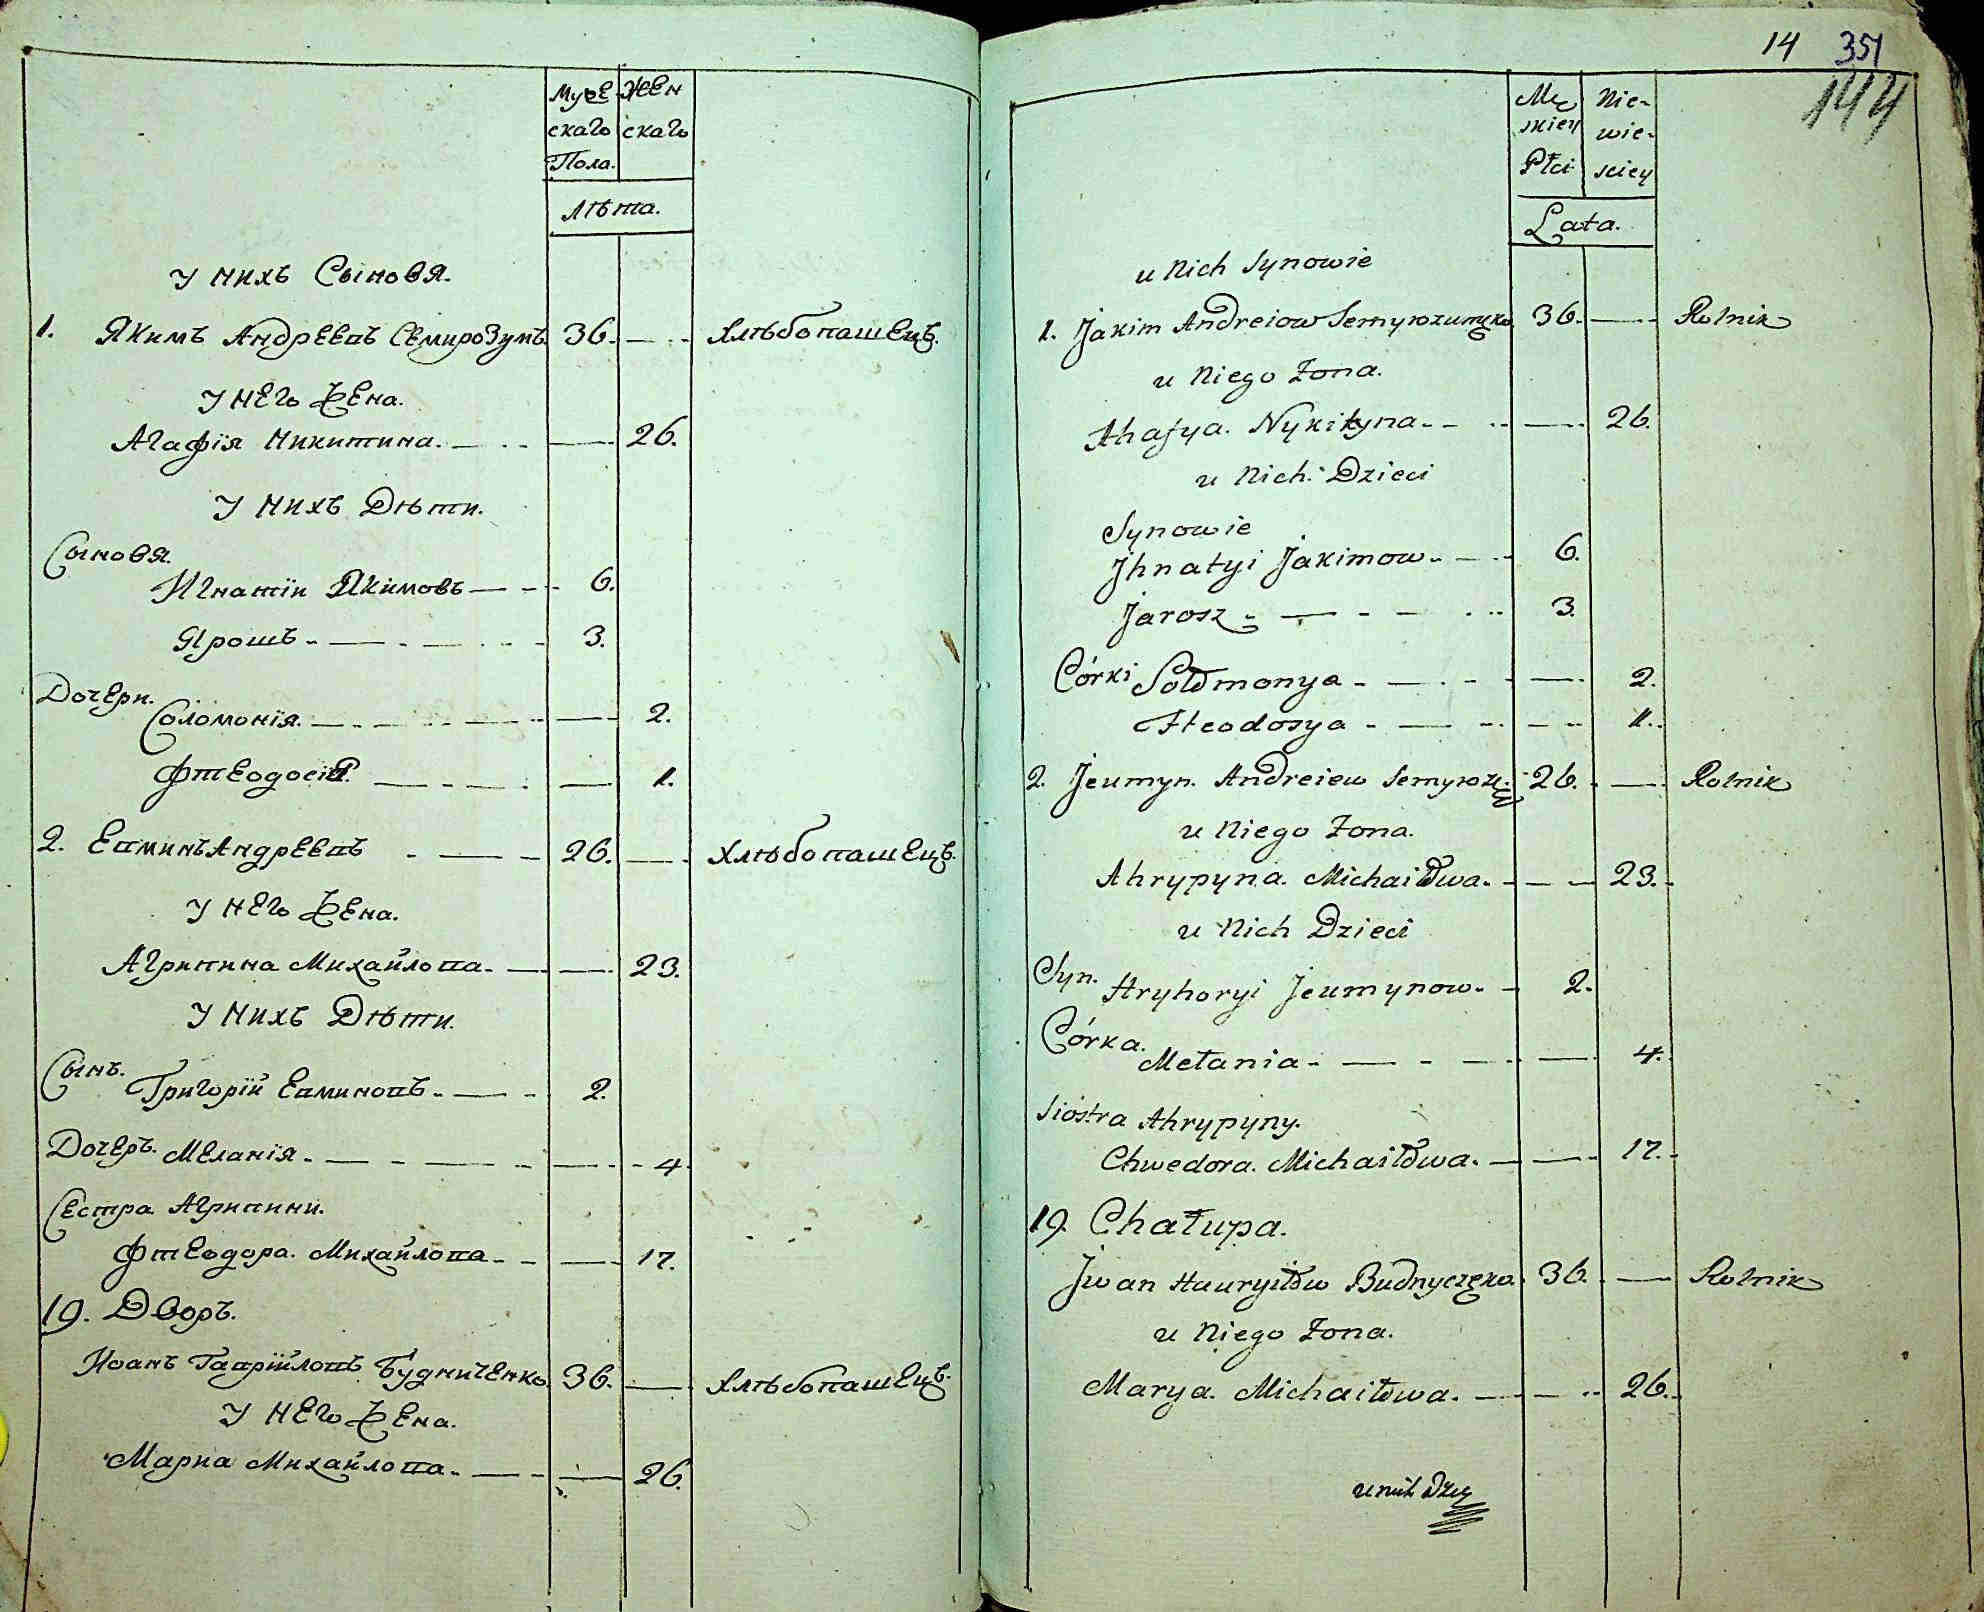 Мужескаго Пола. Женскаго
Лѣта.
У нихъ Сыновя.
1. Якимъ Андреевъ Семирозумъ 36. Хлѣбопашецъ.
У него Жена.
Агафія Никитина. 26.
У нихъ Дѣти.
Сыновя.
Игнатій Якимовъ 6.
Ярошъ 3.
Дочери.
Соломонія. 2.
Фтеодосія. 1.
2. Евминъ Андреевъ 26. Хлѣбопашецъ.
У него Жена.
Агрипина Михайлова. 23.
У нихъ Дѣти.
Сынъ.
Григорій Евминовъ. 2.
Дочеръ. Меланія. 4
Сестра Агрипини.
Фтеодора. Михайлова 17.
19. Дворъ.
Иоанъ Гавріиловъ Будниченко 36. Хлѣбопашецъ.
У него Жена.
Мариа Михайлова. 26.
14 351
144
Męskiey Płci Niewiesciey
Lata.
u Nich Synowie
1. Jakim Andreiow Semyrozumęko 36. Rolnik
u Niego Żona.
Ahafya. Nykityna. 26.
u Nich. Dzieci
Synowie
Jhnatyi Jakimow. 6.
Jarosz 3.
Córki Sołomonya 2.
Fteodosya 1.
2. Jeumyn. Andreiew Semyroz. 26. Rolnik
u Niego Żona.
Ahrypyna. Michaiłowa. 23.
u Nich Dzieci
Syn.
Hryhoryi Jeumynow. 2.
Córka.
Mełania 4.
Siostra Ahrypyny.
Chwedora. Michaiłowa. 17.
19. Chałupa.
Jwan Hauryiłow Budnyczęko. 36. Rolnik
u Niego Żona.
Marya. Michaiłowa. 26.
u nich Dzie